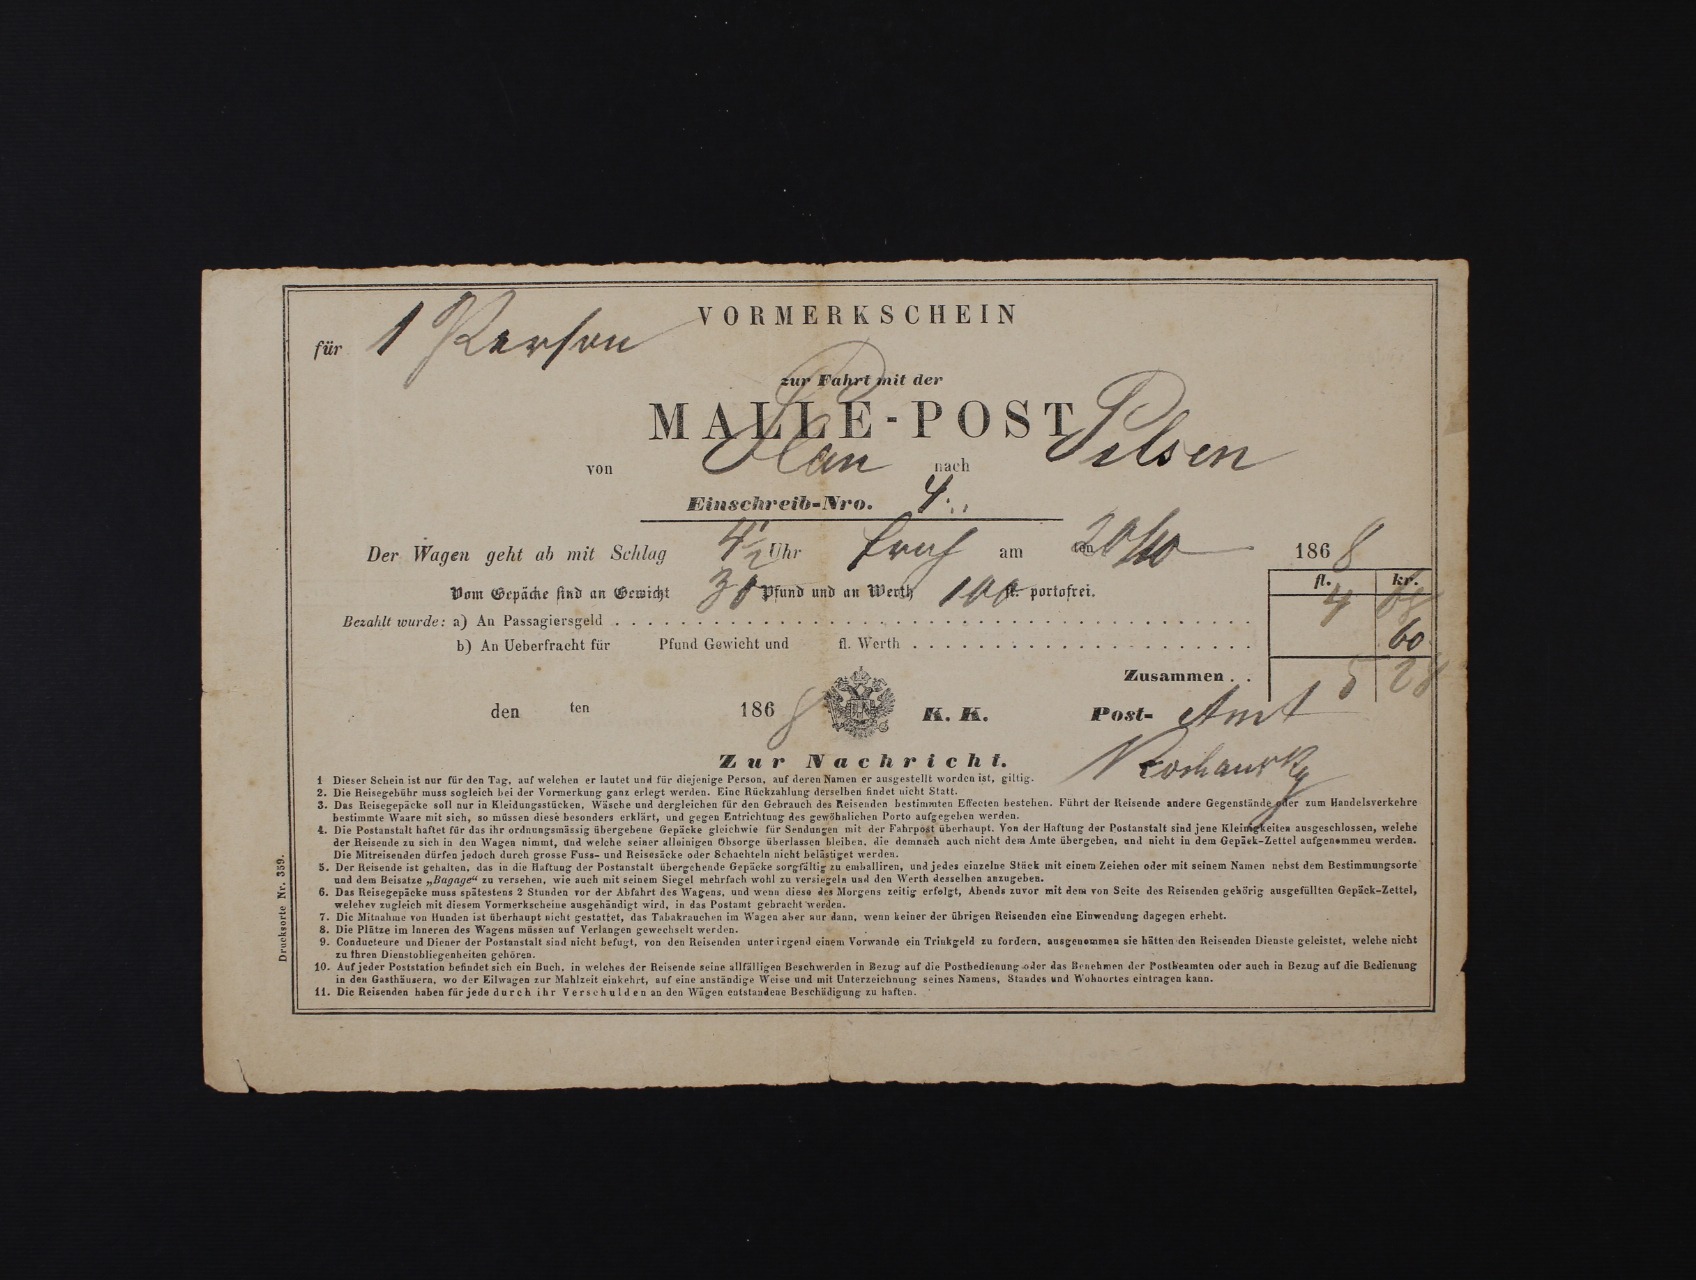 VORMERKSCHEIN
für 1 Person
zur Fahrt mit der
MALLE-POST
von Plan nach Pilsen
Einschreib-Nro. 4.
Der Wagen geht ab mit Schlag 4 1/2 Uhr fruh am 20ten/10 1868
fl. kr.
Vom Gepäcke sind an Gewicht 30 Pfund und an Werth 100 fl. portofrei.
Bezahlt wurde: a) An Passagiersgeld . . . 4 68
b) An Ueberfracht für Pfund Gewicht und fl. Werth . . . 60
Zusammen . . 5 28
den ten 1868 K. K. Post- Amt
Zur Nachricht.
1 Dieser Schein ist nur für den Tag, auf welchen er lautet und für diejenige Person, auf deren Namen er ausgestellt worden ist, giltig.
2. Die Reisegebühr muss sogleich bei der Vormerkung ganz erlegt werden. Eine Rückzahlung derselben findet nicht Statt.
3. Das Reisegepäcke soll nur in Kleidungsstücken, Wäsche und dergleichen für den Gebrauch des Reisenden bestimmten Effecten bestehen. Führt der Reisende andere Gegenstände oder zum Handelsverkehre
bestimmte Waare mit sich, so müssen diese besonders erklärt, und gegen Entrichtung des gewöhnlichen Porto aufgegeben werden.
4. Die Postanstalt haftet für das ihr ordnungsmässig übergebene Gepäcke gleichwie für Sendungen mit der Fahrpost überhaupt. Von der Haftung der Postanstalt sind jene Kleinigkeiten ausgeschlossen, welche
der Reisende zu sich in den Wagen nimmt, und welche seiner alleinigen Obsorge überlassen bleiben, die demnach auch nicht dem Amte übergeben, und nicht in dem Gepäck-Zettel aufgenommen werden.
Die Mitreisenden dürfen jedoch durch grosse Fuss- und Reisesäcke oder Schachteln nicht belästiget werden.
5. Der Reisende ist gehalten, das in die Haftung der Postanstalt übergehende Gepäcke sorgfältig zu emballiren, und jedes einzelne Stück mit einem Zeichen oder mit seinem Namen nebst dem Bestimmungsorte
und dem Beisatze „Bagage“ zu versehen, wie auch mit seinem Siegel mehrfach wohl zu versiegeln und den Werth desselben anzugeben.
6. Das Reisegepäcke muss spätestens 2 Stunden vor der Abfahrt des Wagens, und wenn diese des Morgens zeitig erfolgt, Abends zuvor mit dem von Seite des Reisenden gehörig ausgefüllten Gepäck-Zettel,
welcher zugleich mit diesem Vormerkscheine ausgehändigt wird, in das Postamt gebracht werden.
7. Die Mitnahme von Hunden ist überhaupt nicht gestattet, das Tabakrauchen im Wagen aber nur dann, wenn keiner der übrigen Reisenden eine Einwendung dagegen erhebt.
8. Die Plätze im Inneren des Wagens müssen auf Verlangen gewechselt werden.
9. Conducteure und Diener der Postanstalt sind nicht befugt, von den Reisenden unter irgend einem Vorwande ein Trinkgeld zu fordern, ausgenommen sie hätten den Reisenden Dienste geleistet, welche nicht
zu ihren Dienstobliegenheiten gehören.
10. Auf jeder Poststation befindet sich ein Buch, in welches der Reisende seine allfälligen Beschwerden in Bezug auf die Postbedienung oder das Benehmen der Postbeamten oder auch in Bezug auf die Bedienung
in den Gasthäusern, wo der Eilwagen zur Mahlzeit einkehrt, auf eine anständige Weise und mit Unterzeichnung seines Namens, Standes und Wohnortes eintragen kann.
11. Die Reisenden haben für jede durch ihr Verschulden an den Wägen entstandene Beschädigung zu haften.
Drucksorte Nr. 359.